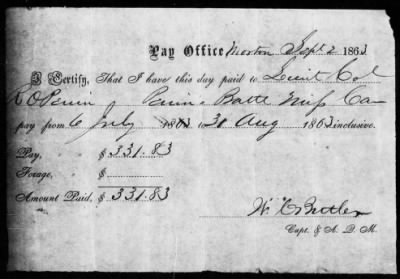 Pay Office, Morton Sept 2 1863
I Certify, That I have this day paid to Lieut Col
R O Perrin of Perrin's Battl Miss Cav
pay from 6 July 1863 to 31 Aug 1863 inclusive.
Pay, $ 331.83
Forage, $
Amount Paid, $ 331.83
Capt. & A. Q. M.